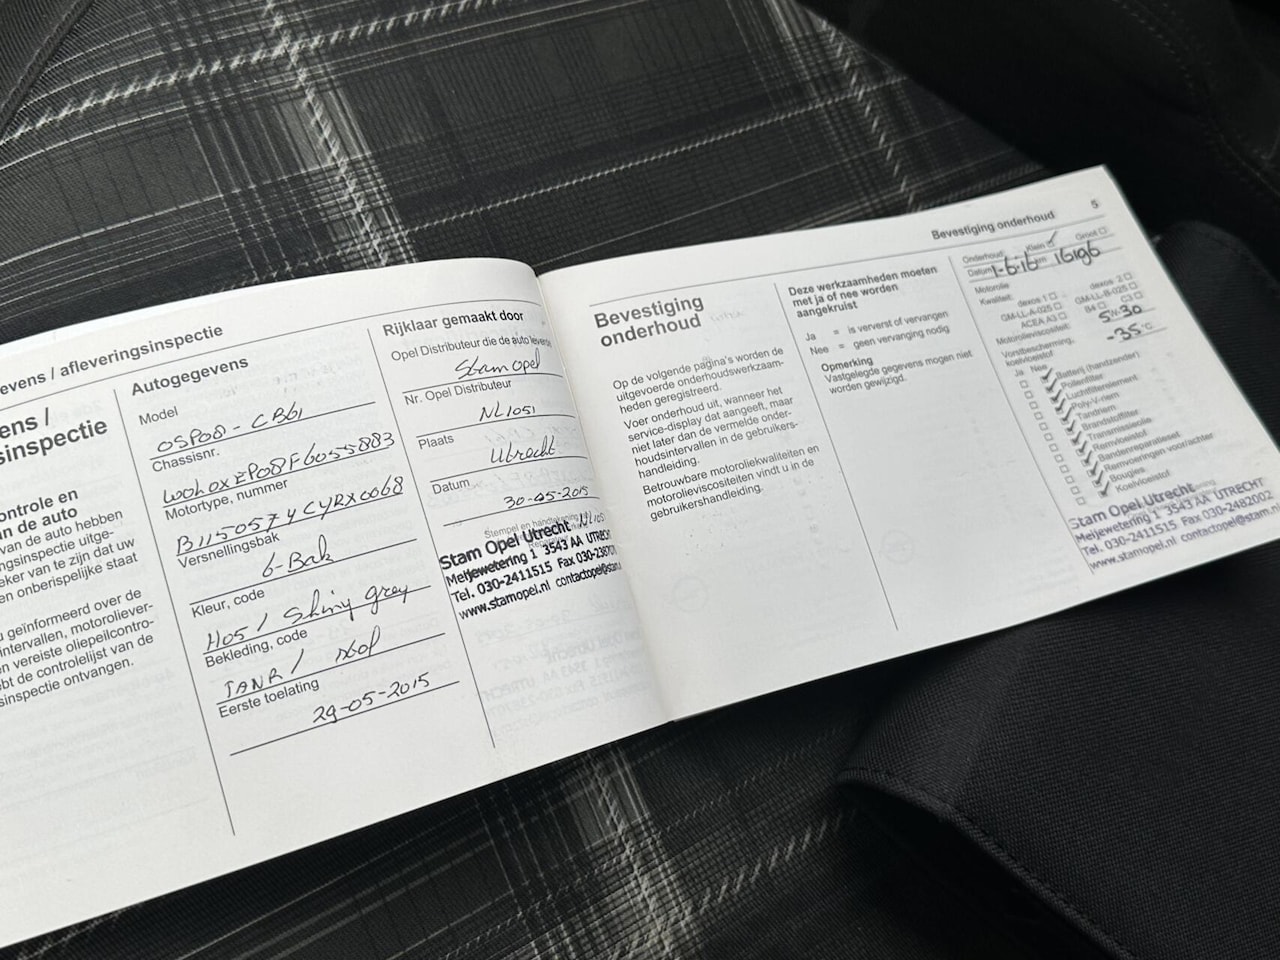 evens / afleveringsinspectie
ens /
sinspectie
ontrole en
n de auto
van de auto hebben
ngsinspectie uitge-
eker van te zijn dat uw
en onberispelijke staat
u geïnformeerd over de
intervallen, motoroliever-
n vereiste oliepeilcontro-
bt de controlelijst van de
sinspectie ontvangen.
Autogegevens
Model
OSP08 - CB61
Chassisnr.
W0L0XEP08F6055883
Motortype, nummer
Versnellingsbak
6-Bak
Kleur, code
H05 / Shiny grey
Bekleding, code
TANR /
Eerste toelating
29-05-2015
Rijklaar gemaakt door
Opel Distributeur die de auto leverde
Stam opel
Nr. Opel Distributeur
NL1051
Plaats
Utrecht
Datum
30-05-2015
Stempel en handtekening
NL1051
Stam Opel Utrecht
Meijewetering 1 3543 AA UTRECHT
Tel. 030-2411515 Fax 030-
www.stamopel.nl contactopel@stam
Bevestiging onderhoud 5
Bevestiging
onderhoud
Op de volgende pagina's worden de
uitgevoerde onderhoudswerkzaam-
heden geregistreerd.
Voer onderhoud uit, wanneer het
service-display dat aangeeft, maar
niet later dan de vermelde onder-
houdsintervallen in de gebruikers-
handleiding.
Betrouwbare motoroliekwaliteiten en
motorolieviscositeiten vindt u in de
gebruikershandleiding.
Deze werkzaamheden moeten
met ja of nee worden
aangekruist
Ja = is ververst of vervangen
Nee = geen vervanging nodig
Opmerking
Vastgelegde gegevens mogen niet
worden gewijzigd.
Onderhoud: Klein Groot
Datum 1-6-16 km 16196
Motorolie
Kwaliteit: dexos 1 dexos 2
GM-LL-A-025 GM-LL-B-025
ACEA A3 B4 C3
Motorolieviscositeit: 5W-30
Vorstbescherming,
koelvloeistof -35 °C
Ja Nee
Batterij (handzender)
Pollenfilter
Luchtfilterelement
Poly-V-riem
Tandriem
Brandstoffilter
Transmissieolie
Remvloeistof
Bandenreparatieset
Remvoeringen voor/achter
Bougies
Koelvloeistof
Stam Opel Utrecht
Meijewetering 1 3543 AA UTRECHT
Tel. 030-2411515 Fax 030-2482002
www.stamopel.nl contactopel@stam.n